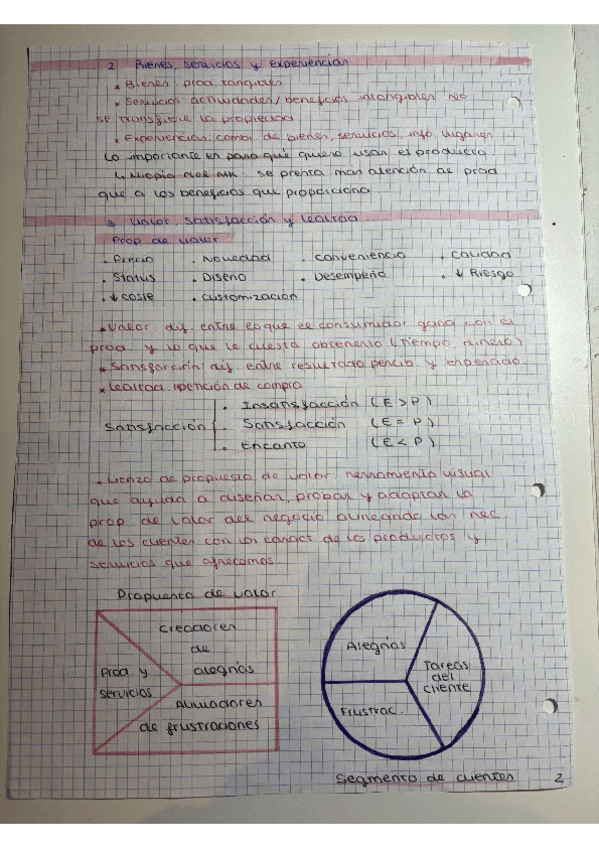 2. Bienes, servicios y experiencias
* Bienes: prod tangibles
* Servicios: actividades/beneficios intangibles No
se transfiere la propiedad
* Experiencias: combi de bienes, servicios, info, lugares
Lo importante es para qué quiero usar el producto
↳ Miopía del MK: se presta mas atención al prod
que a los beneficios que proporciona
3. Valor, satisfacción y lealtad
Prop de valor
. Precio . Novedad . Conveniencia . Calidad
. Status . Diseño . Desempeño . ↓ Riesgo
. ↓ coste . Customización
* Valor: dif. entre lo que el consumidor gana con el
prod y lo que le cuesta obtenerlo (tiempo, dinero)
* Satisfacción: dif. entre resultado percib. y esperado
* Lealtad: repetición de compra
. Insatisfacción (E > P)
Satisfacción . Satisfacción (E = P)
. Encanto (E < P)
. Lienzo de propuesta de valor: herramienta visual
que ayudan a diseñar, probar y adaptar la
prop de valor del negocio alineando las nec
de los clientes con las caract de los productos y
servicios que ofrecemos
Propuesta de valor
Creadores
de
alegrías
Prod. y
servicios
Aliviadores
de frustraciones
Alegrías
Tareas
del
cliente
Frustrac.
Segmento de clientes 2